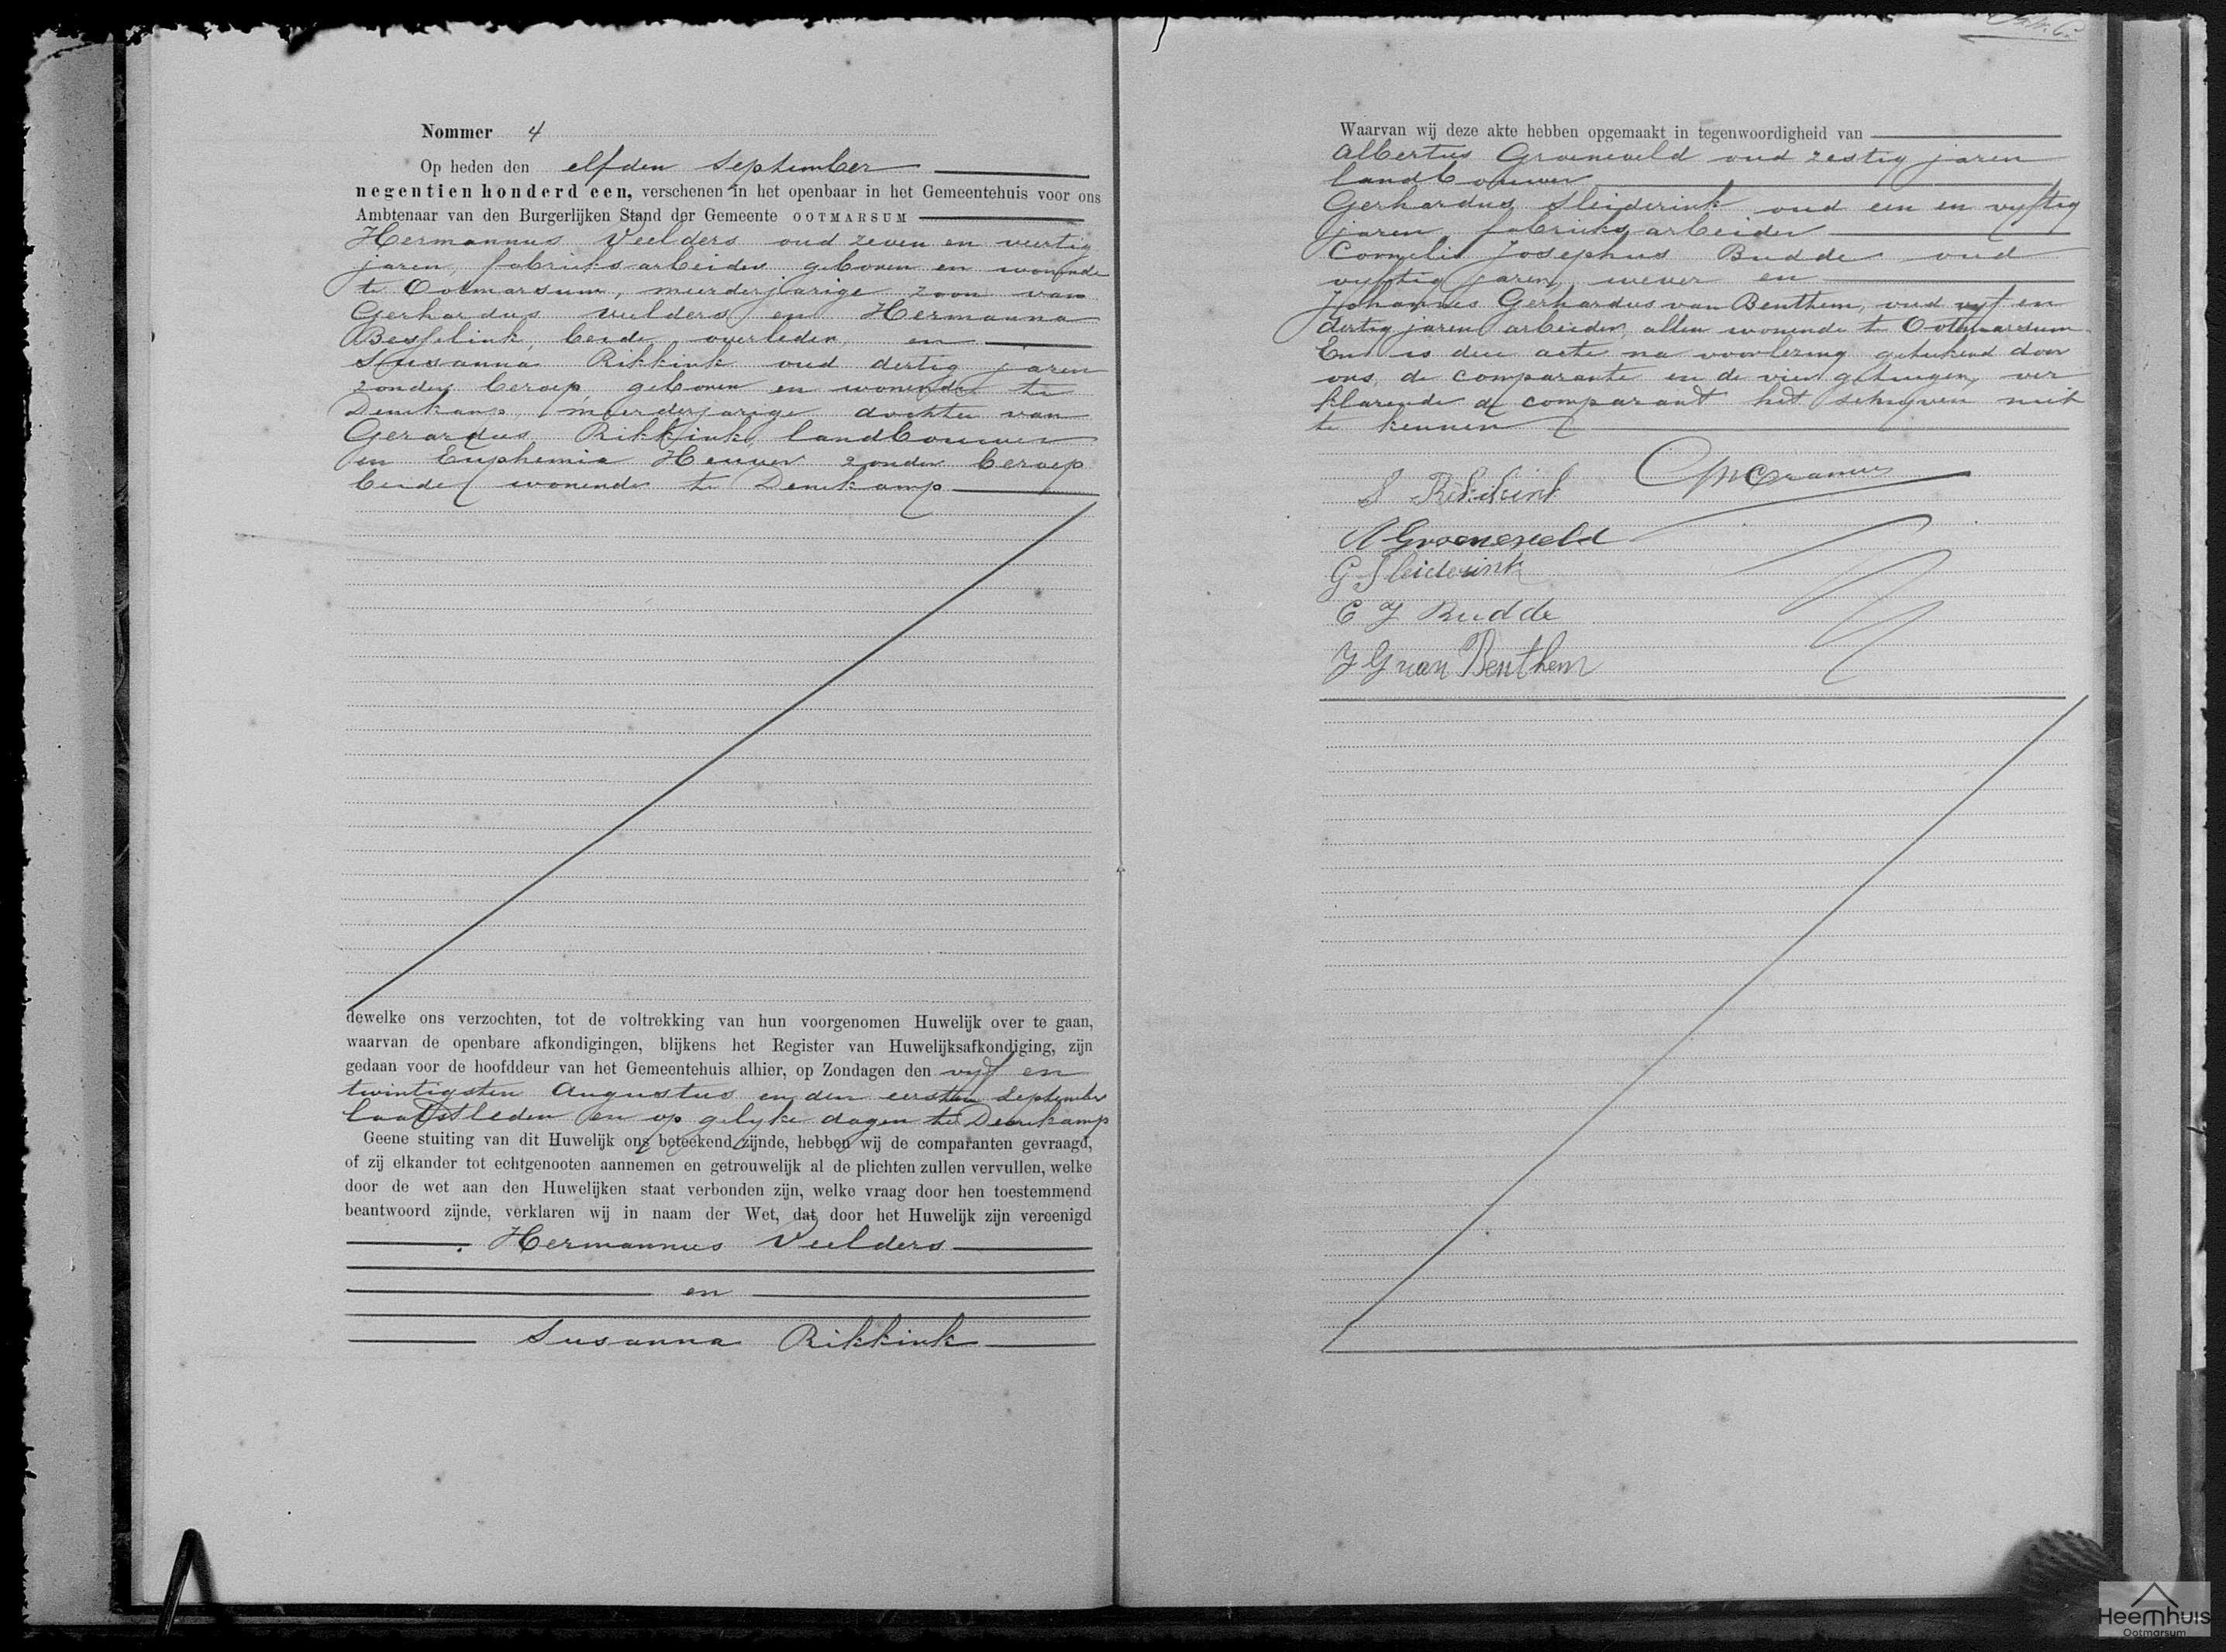 Nommer 4
Op heden den elfden September
negentien honderd een, verschenen in het openbaar in het Gemeentehuis voor ons
Ambtenaar van den Burgerlijken Stand der Gemeente OOTMARSUM
Hermannus Veelders oud zeven en veertig
jaren, fabrieksarbeider geboren en wonende
te Ootmarsum, meerderjarige zoon van
Gerhardus Veelders en Hermanna
beide overleden, en
Susanna Rikkink oud dertig jaren
zonder beroep, geboren en wonende te
Denekamp, meerderjarige dochter van
Gerardus Rikkink landbouwer
en Euphemia Heuver zonder beroep
beide wonende te Denekamp
dewelke ons verzochten, tot de voltrekking van hun voorgenomen Huwelijk over te gaan,
waarvan de openbare afkondigingen, blijkens het Register van Huwelijksafkondiging, zijn
gedaan voor de hoofddeur van het Gemeentehuis alhier, op Zondagen den vijf en
twintigsten Augustus en den eersten September
laatstleden en op gelijke dagen te Denekamp
Geene stuiting van dit Huwelijk ons beteekend zijnde, hebben wij de comparanten gevraagd,
of zij elkander tot echtgenooten aannemen en getrouwelijk al de plichten zullen vervullen, welke
door de wet aan den Huwelijken staat verbonden zijn, welke vraag door hen toestemmend
beantwoord zijnde, verklaren wij in naam der Wet, dat door het Huwelijk zijn vereenigd
Hermannus Veelders
en
Susanna Rikkink
Waarvan wij deze akte hebben opgemaakt in tegenwoordigheid van
Albertus Groeneveld oud zestig jaren
landbouwer
Gerhardus Sleiderink oud een en vijftig
jaren, fabrieksarbeider
Cornelis Josephus Budde oud
vijftig jaren, wever en
Johannes Gerhardus van Benthem, oud vijf en
dertig jaren arbeider, allen wonende te Ootmarsum
En is deze acte na voorlezing geteekend door
ons, de comparante en de vier getuigen, ver
klarende de comparant het schrijven niet
te kennen
S Rikkink
A Groeneveld
G Sleiderink
C J Budde
J G van Benthem
Heemhuis
Ootmarsum